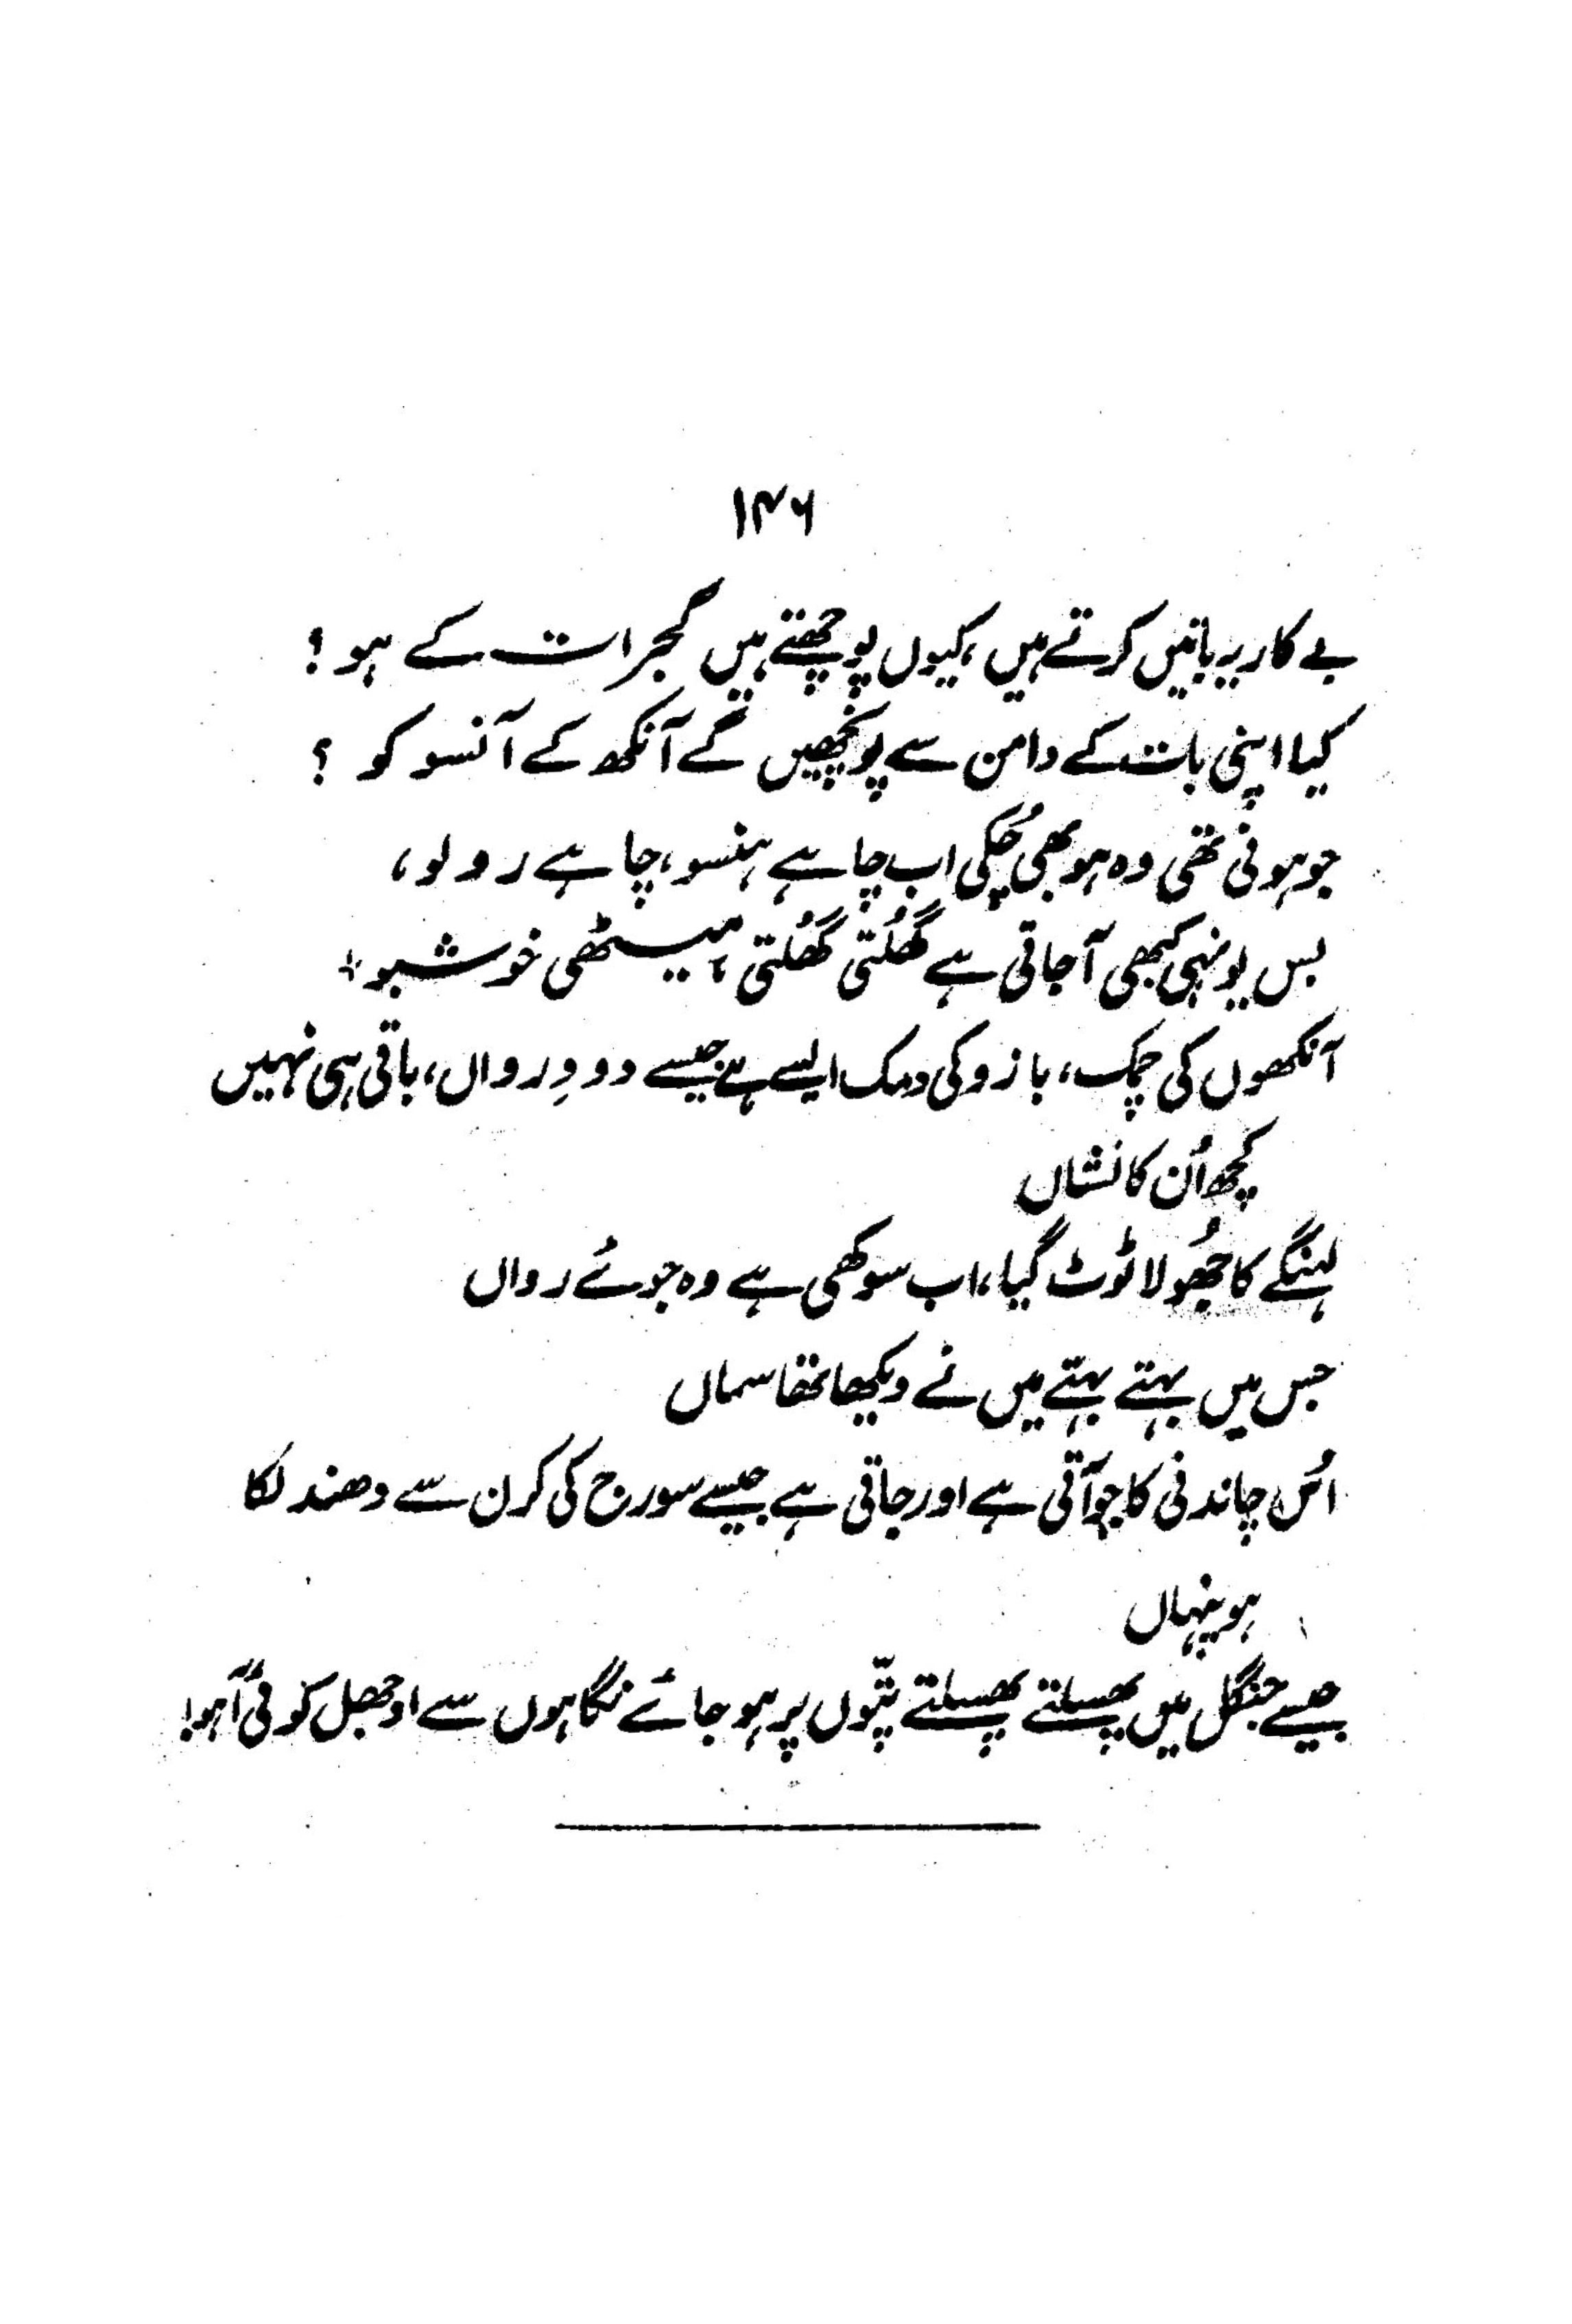 ۱۴۶
بے کار یہ باتیں کرتے ہیں، کیوں پوچھتے ہیں گجرات کے ہو؟
کیا اپنی بات کے دامن سے پونچھیں گے آنکھ کے آنسو کو ؟
جو ہونی تھی وہ ہو بھی چُکی اب چاہے ہنسو، چاہے رو لو،
بس یونہی کبھی آ جاتی ہے گھُلتی گھُلتی، میٹھی خوشبو،
آنکھوں کی چمک، بازو کی دمک ایسے ہے جیسے دودِ رواں، باقی ہی نہیں
کچھ اُن کا نشاں
لہنگے کا جھُولا ٹوٹ گیا، اب سوکھی ہے وہ جوئے رواں
جس میں بہتے بہتے میں نے دیکھا تھا سماں
اُس چاندنی کا جو آتی ہے اور جاتی ہے جیسے سورج کی کرن سے دھندلکا
ہو پنہاں
جیسے جنگل میں پھسلتے پھسلتے پتّوں پر ہو جائے نگاہوں سے اوجھل کوئی آہو!